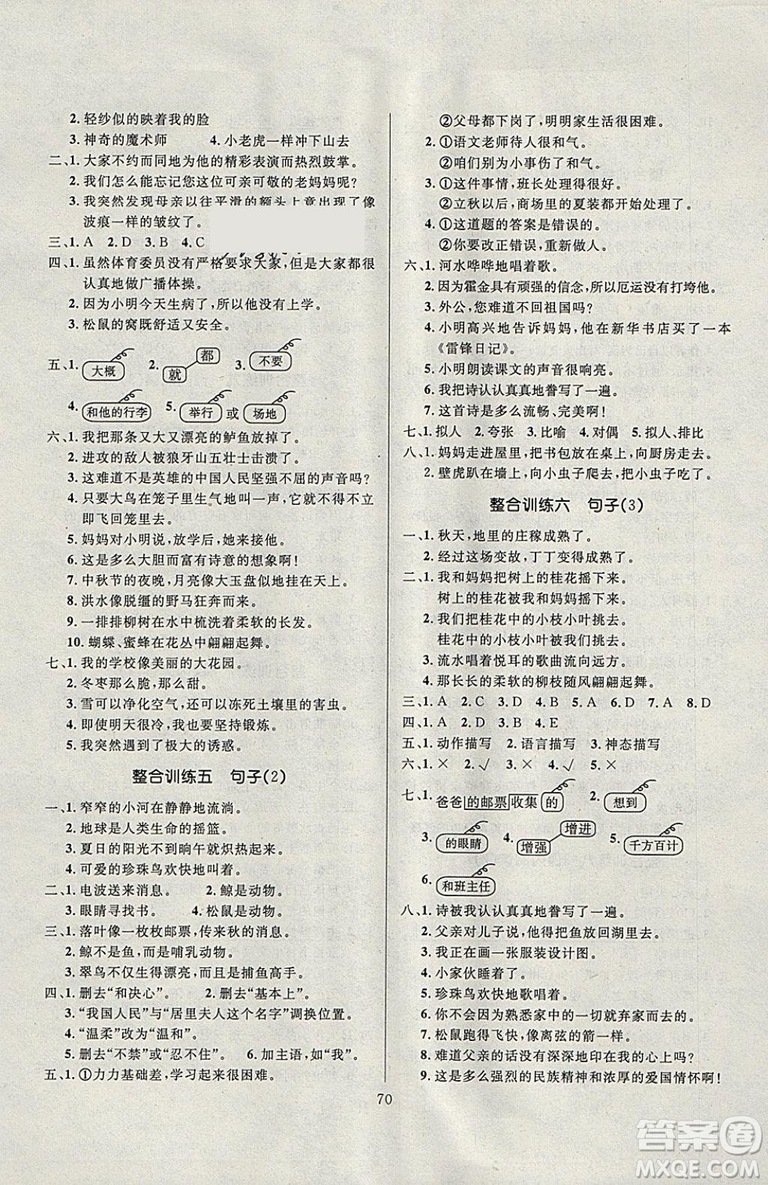 2. 轻纱似的映着我的脸
3. 神奇的魔术师　4. 小老虎一样冲下山去
二、1. 大家不约而同地为他的精彩表演而热烈鼓掌。
2. 我们怎么能忘记您这位可亲可敬的老妈妈呢?
3. 我突然发现母亲以往平滑的额头上竟出现了像
波痕一样的皱纹了。
三、1. A　2. D　3. B　4. C
四、1. 虽然体育委员没有严格要求大家,但是大家都很
认真地做广播体操。
2. 因为小明今天生病了,所以他没有上学。
3. 松鼠的窝既舒适又安全。
五、1. 大概　2. 就 都　3. 不要
4. 和他的行李　5. 举行 或 场地
六、1. 我把那条又大又漂亮的鲈鱼放掉了。
2. 进攻的敌人被狼牙山五壮士击溃了。
3. 这难道不是英雄的中国人民坚强不屈的声音吗?
4. 只要大鸟在笼子里生气地叫一声,它们就会立
即飞回笼里来。
5. 妈妈对小明说,放学后,她来接他。
6. 这是多么大胆而富有诗意的想象啊!
7. 中秋节的夜晚,月亮像大玉盘似地挂在天上。
8. 洪水像脱缰的野马狂奔而来。
9. 一排排柳树在水中梳洗着柔软的长发。
10. 蝴蝶、蜜蜂在花丛中翩翩起舞。
七、1. 我的学校像美丽的大花园。
2. 冬枣那么脆,那么甜。
3. 雪可以净化空气,还可以冻死土壤里的害虫。
4. 即使明天很冷,我也要坚持锻炼。
5. 我突然遇到了极大的诱惑。
整合训练五　句子(2)
一、1. 窄窄的小河在静静地流淌。
2. 地球是人类生命的摇篮。
3. 夏日的阳光不到晌午就炽热起来。
4. 可爱的珍珠鸟欢快地叫着。
二、1. 电波送来消息。　2. 鲸是动物。
3. 眼睛寻找书。　4. 松鼠是动物。
三、1. 落叶像一枚枚邮票,传来秋的消息。
2. 鲸不是鱼,而是哺乳动物。
3. 翠鸟不仅生得漂亮,还是捕鱼高手。
四、1. 删去“和决心”。　2. 删去“基本上”。
3. “我国人民”与“居里夫人这个名字”调换位置。
4. “温柔”改为“温和”。
5. 删去“不禁”或“忍不住”。　6. 加主语,如“我”。
五、1. ①力力基础差,学习起来很困难。
②父母都下岗了,明明家生活很困难。
2. ①语文老师待人很和气。
②咱们别为小事伤了和气。
3. ①这件事情,班长处理得很好。
②立秋以后,商场里的夏装开始处理了。
4. ①这道题的答案是错误的。
②你要改正错误,重新做人。
六、1. 河水哗哗地唱着歌。
2. 因为霍金具有顽强的信念,所以厄运没有打垮他。
3. 外公,您难道不回祖国吗?
4. 小明高兴地告诉妈妈,他在新华书店买了一本
《雷锋日记》。
5. 小明朗读课文的声音很响亮。
6. 我把诗认认真真地誊写了一遍。
7. 这首诗是多么流畅、完美啊!
七、1. 拟人　2. 夸张　3. 比喻　4. 对偶　5. 拟人、排比
八、1. 妈妈走进屋里,把书包放在桌上,向厨房走去。
2. 壁虎趴在墙上,向小虫子爬去,把小虫子吃了。
整合训练六　句子(3)
一、1. 秋天,地里的庄稼成熟了。
2. 经过这场变故,丁丁变得成熟了。
二、1. 我和妈妈把树上的桂花摇下来。
树上的桂花被我和妈妈摇下来。
2. 我们把桂花中的小枝小叶挑去。
桂花中的小枝小叶被我们挑去。
3. 流水唱着悦耳的歌曲流向远方。
4. 那长长的柔软的柳枝随风翩翩起舞。
三、1. A　2. D　3. C　4. D　5. A　6. A　7. A　8. D
四、1. A　2. D　3. B　4. E
五、1. 动作描写　2. 语言描写　3. 神态描写
六、1. ×　2. √　3. ×　4. √
七、1. 爸爸的邮票收集的　2. 想到
3. 的眼睛　4. 增强 增进　5. 千方百计
6. 和班主任
八、1. 诗被我认认真真地誊写了一遍。
2. 父亲对儿子说,他得把鱼放回湖里去。
3. 我正在画一张服装设计图。
4. 小家伙睡着了。
5. 珍珠鸟欢快地歌唱着。
6. 你不会因为不熟悉家中的一切就弃家而去的。
7. 松鼠跑得飞快,像离弦的箭一样。
8. 难道父亲的话没有深深地印在我的心上吗?
9. 这是多么强烈的民族精神和浓厚的爱国情怀啊!
70
答案圈
MXQE.COM